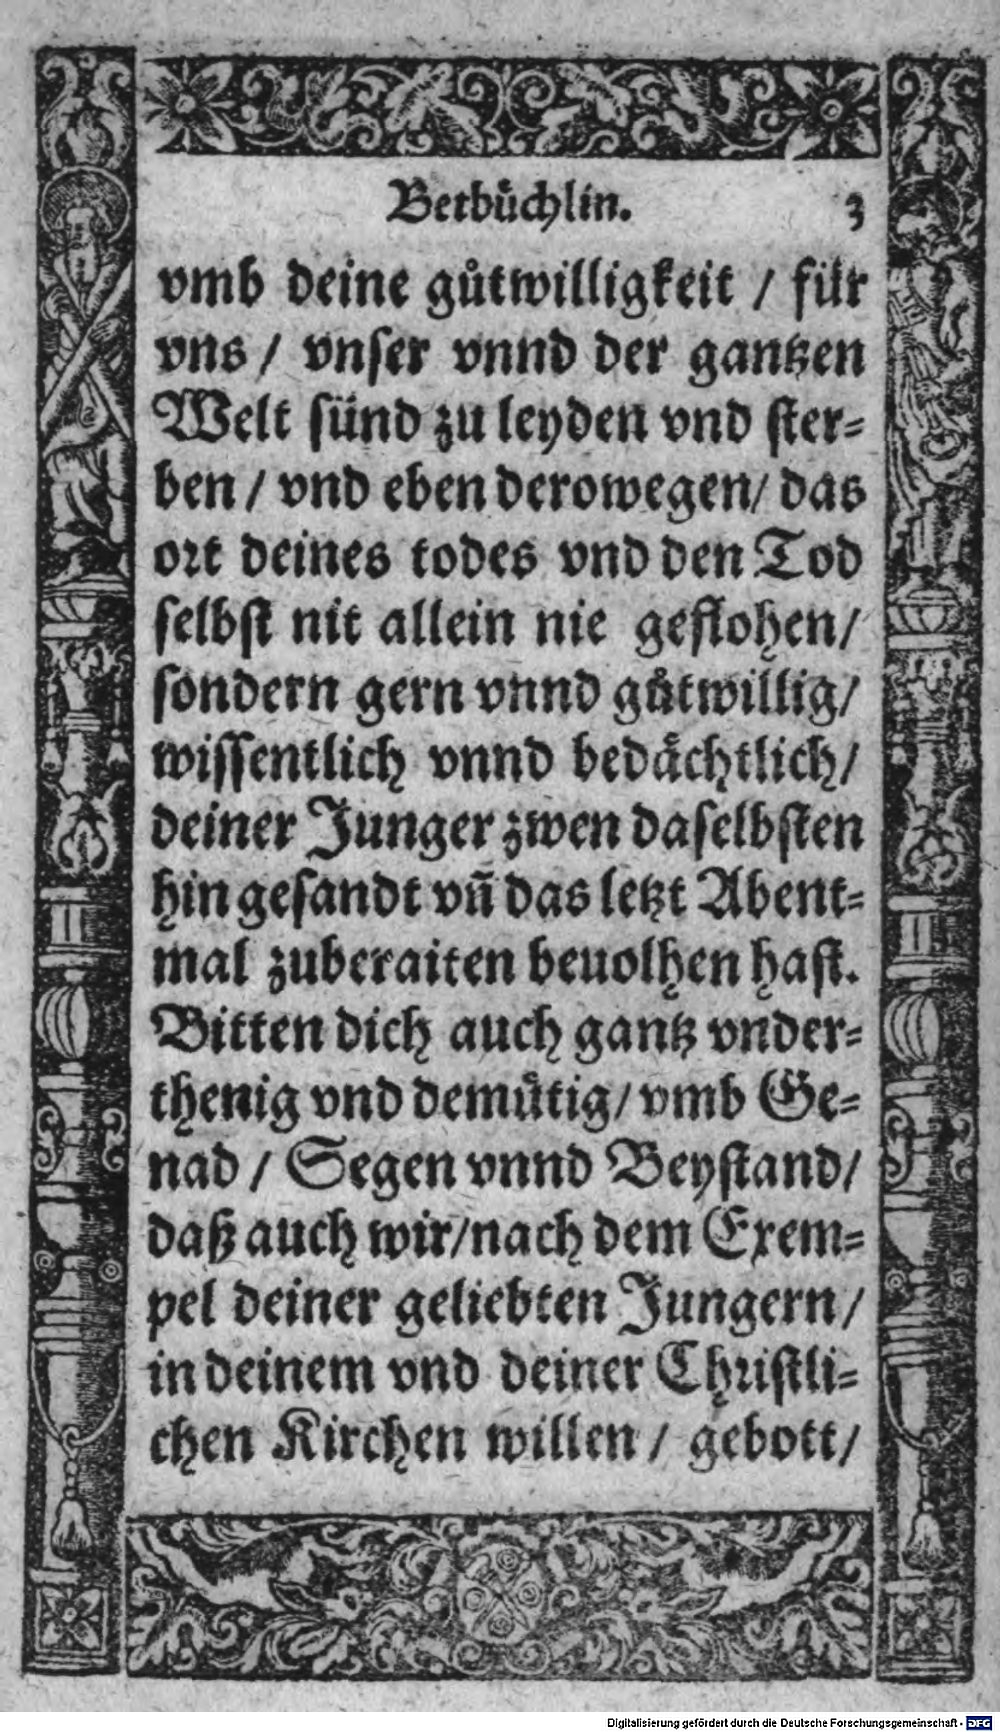 Betbuͤchlin. 3
vmb deine guͤtwilligkeit / für
vns / vnser vnnd der gantzen
Welt sünd zu leyden vnd ster⸗
ben / vnd eben derowegen / das
ort deines todes vnd den Tod
selbst nit allein nie geflohen /
sondern gern vnnd guͤtwillig /
wissentlich vnnd bedaͤchtlich /
deiner Junger zwen daselbsten
hin gesandt vn̄ das letzt Abent⸗
mal zuberaiten beuolhen hast.
Bitten dich auch gantz vnder⸗
thenig vnd demuͤtig / vmb Ge⸗
nad / Segen vnnd Beystand /
daß auch wir / nach dem Exem⸗
pel deiner geliebten Jungern /
in deinem vnd deiner Christli⸗
chen Kirchen willen / gebott /
Digitalisierung gefördert durch die Deutsche Forschungsgemeinschaft - DFG